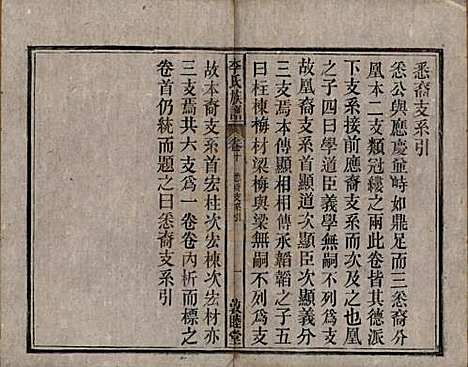 悉裔支系引
悉公與應慶並時如鼎足而三悉裔分
凰本二支類冠縷之兩此卷皆其德派
下支系接前應裔支系而次及之也凰
之子四曰學道臣義學無嗣不列為支
故凰裔支系首顯道次顯臣次顯義分
三支焉本傳顯相相傳承韜韜之子五
曰柱棟梅材梁梅與梁無嗣不列為支
李氏族譜
卷十
悉裔支系引
一
敦睦堂
故本裔支系首宏柱次宏棟次宏材亦
三支焉共六支為一卷卷內析而標之
卷首仍統而題之曰悉裔支系引